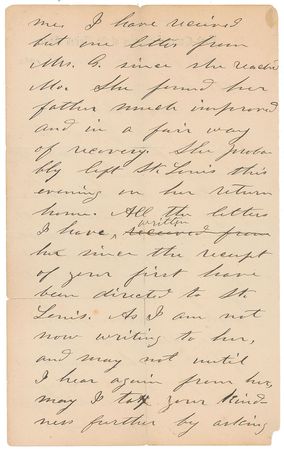 me. I have recieved
but one letter from
Mrs. G. since she reached
Mo. She found her
father much improved
and in a fair way
of recovery. She proba-
bly left St. Louis this
evening on her return
home. All the letters
I have written received from
her since the receipt
of your first have
been directed to St.
Louis. As I am not
now writing to her,
and may not until
I hear again from her,
may I tax your kind-
ness further by asking